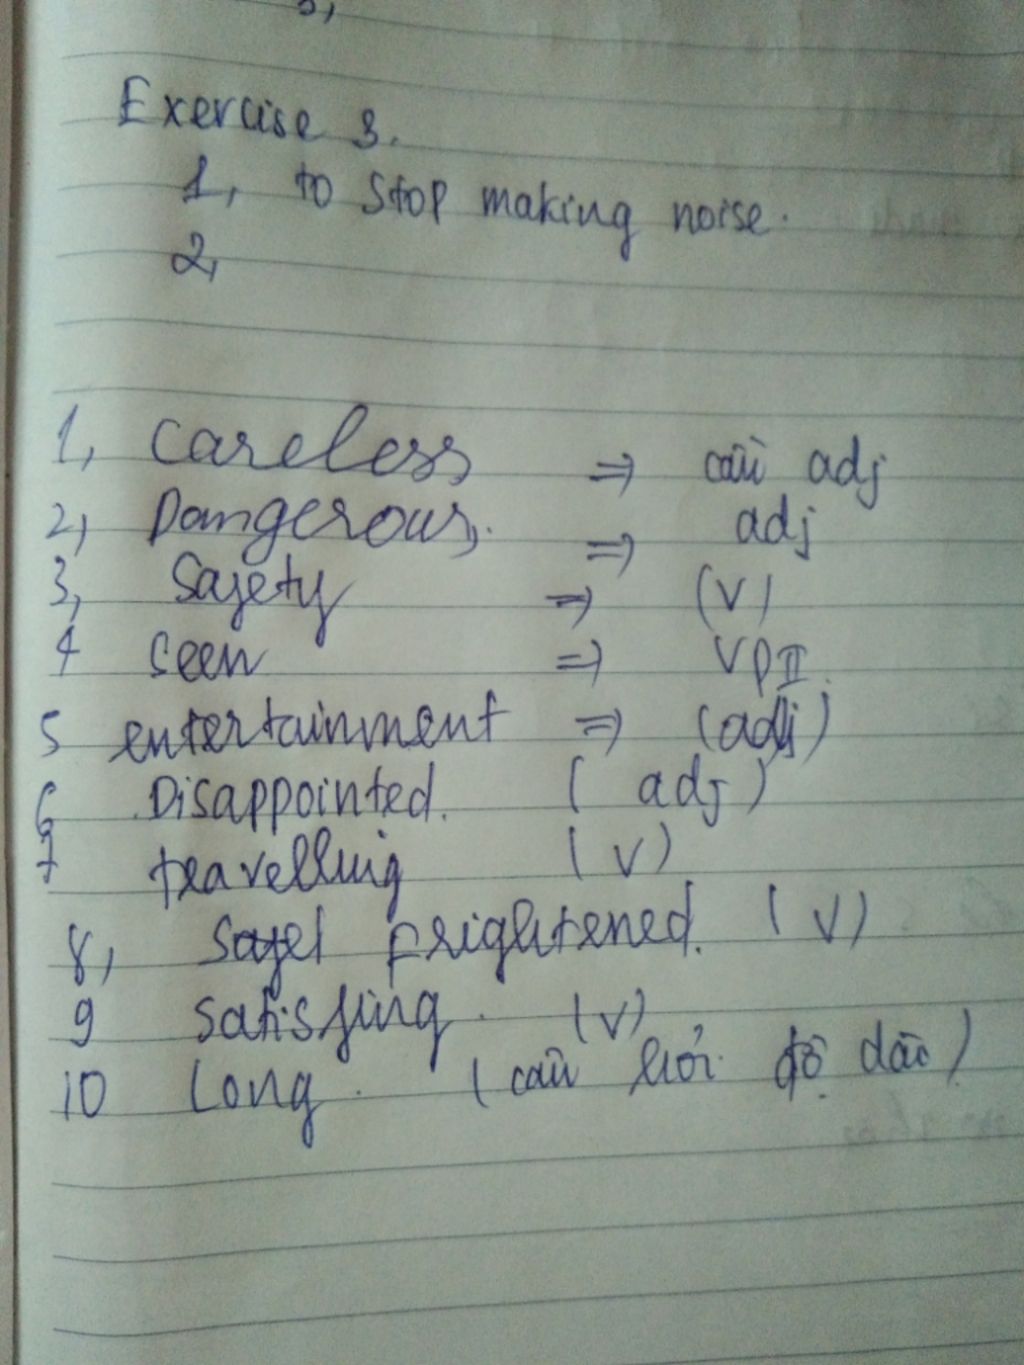 3,
Exercise 3.
1, to stop making noise.
2,
1, Careless => cần adj
2, Dangerous. => adj
3, Safety => (V)
4 seen => VpII.
5 entertainment => (adj)
6 Disappointed. (adj)
7 travelling (V)
8, frightened. (V)
9 Satisfing. (V)
10 Long. (câu hỏi độ dài)